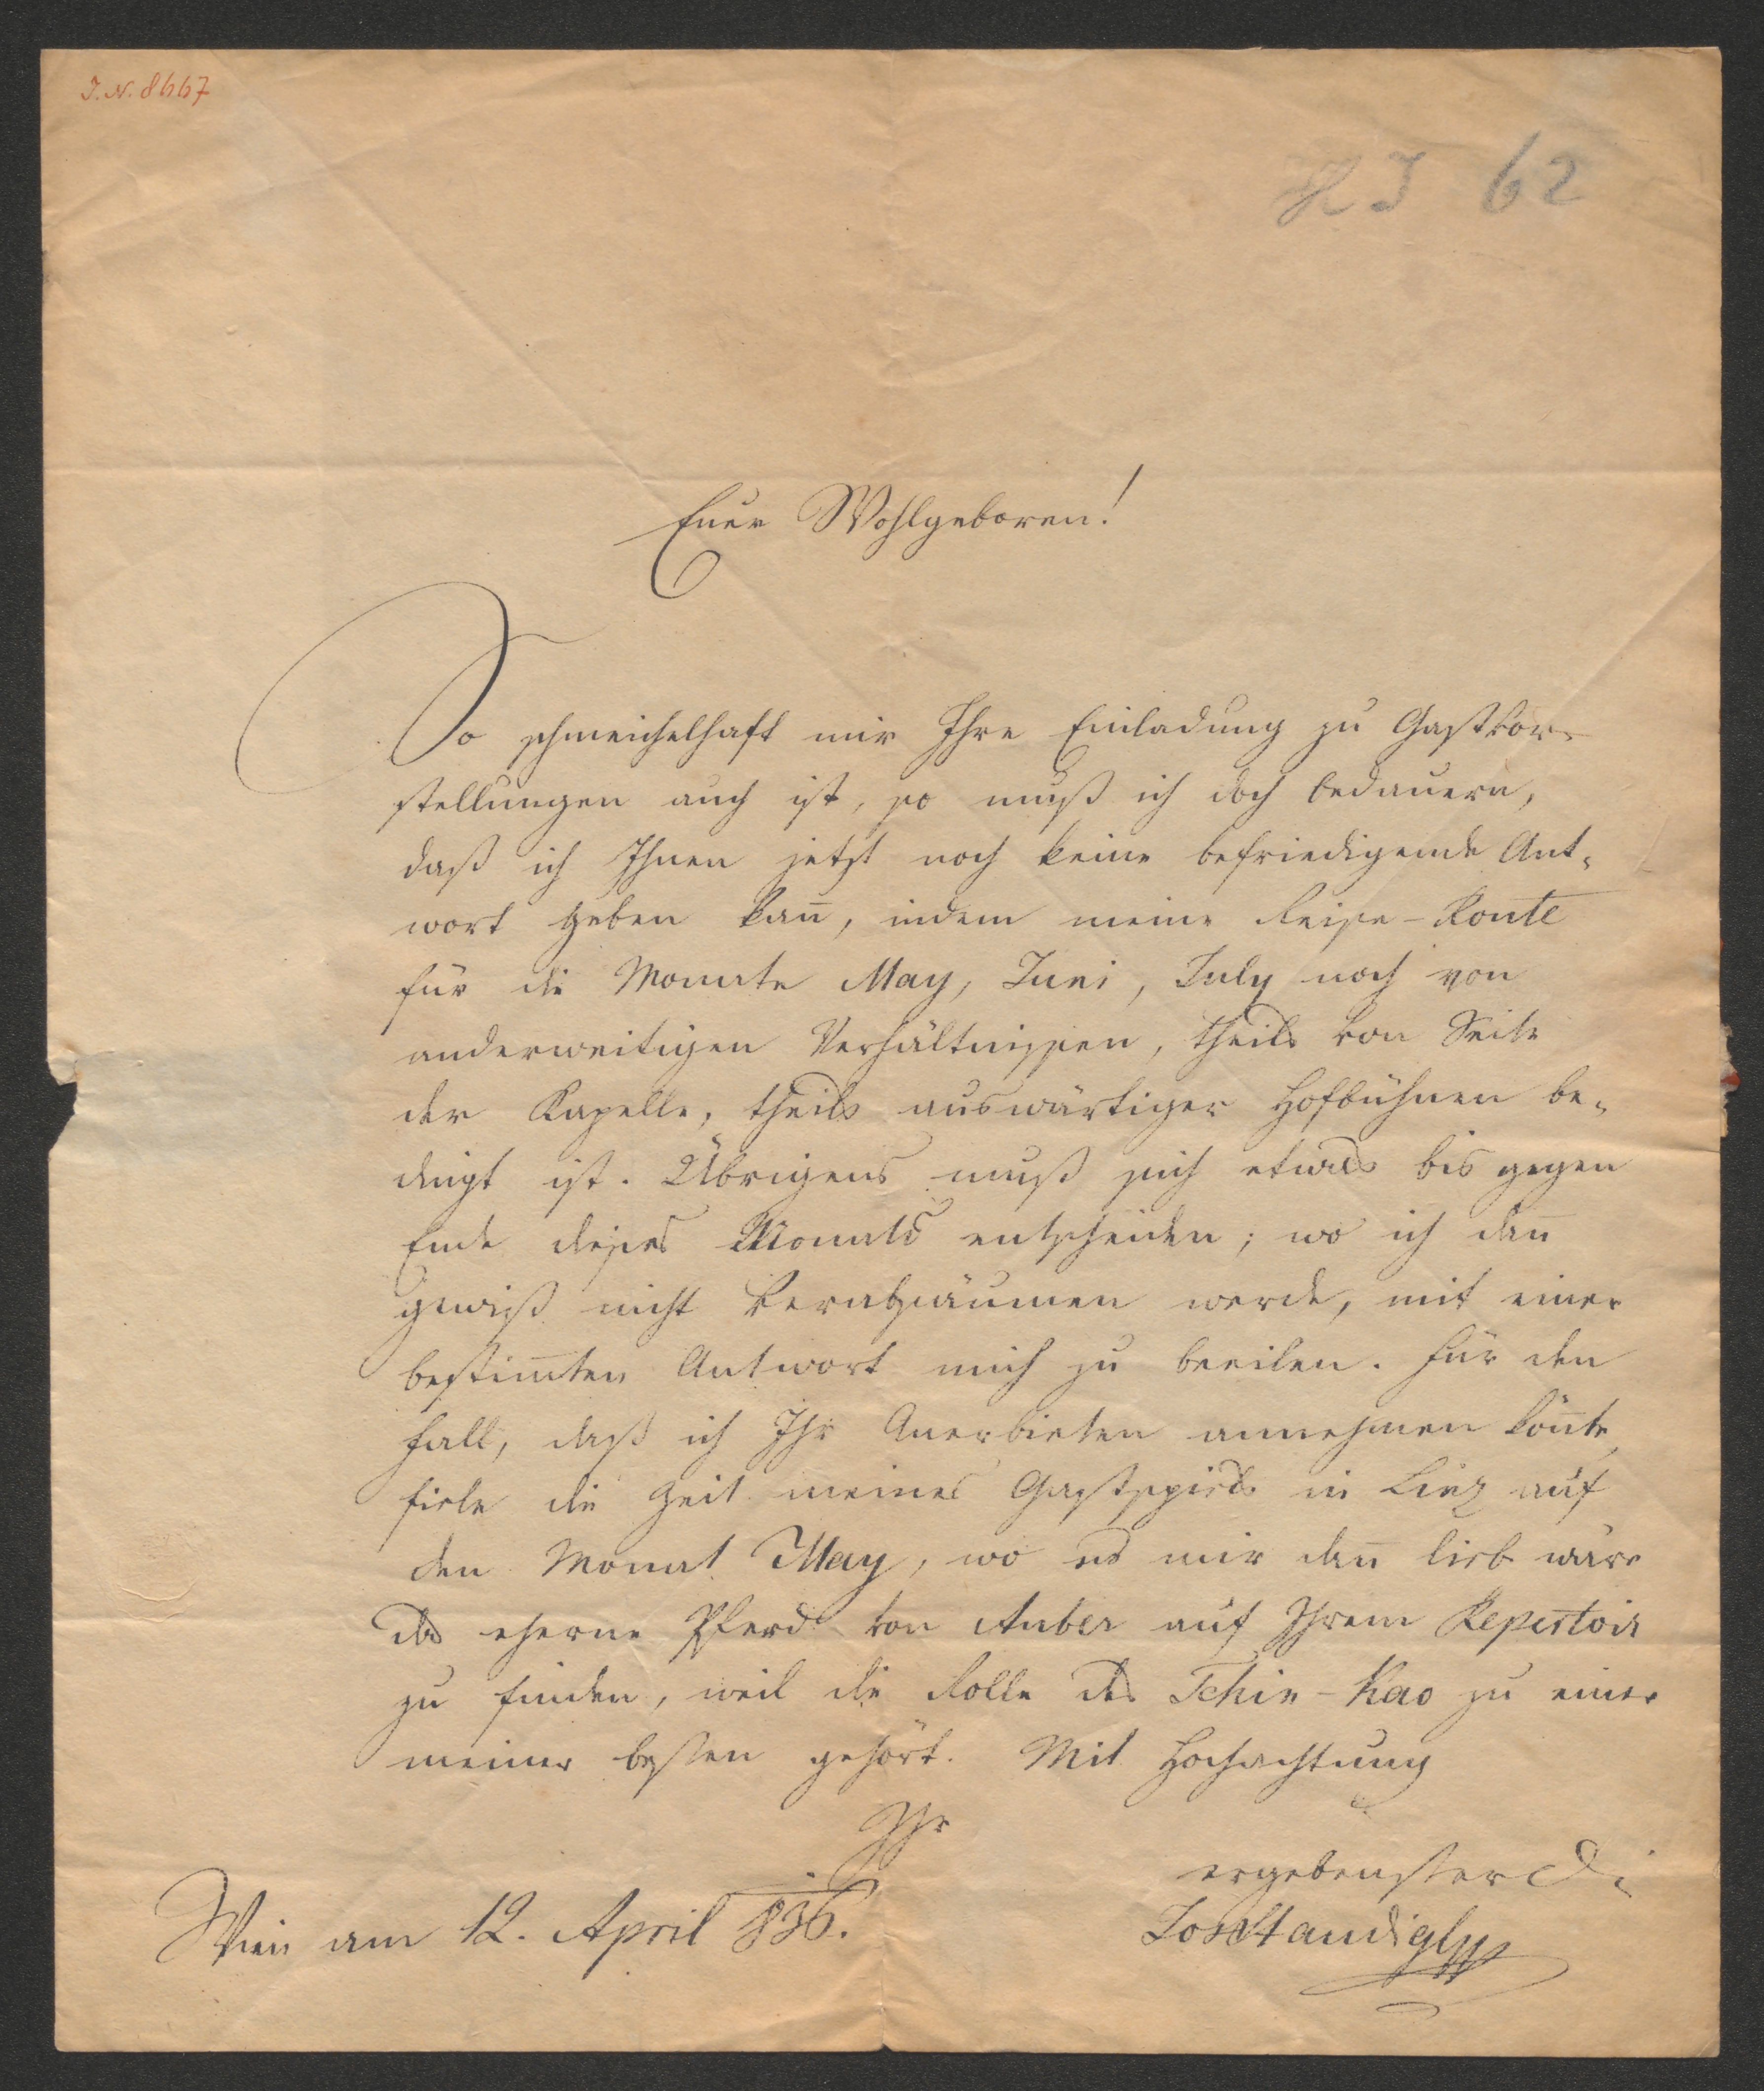 I. N. 8667
H I 62
Euer Wohlgeboren!
So schmeichelhaft mir Ihre Einladung zu Gastvor-
stellungen auch ist, so muß ich doch bedauern,
daß ich Ihnen jetzt noch keine befriedigende Ant-
wort geben kan̄, indem meine Reise-Route
für die Monate May, Juni, July noch von
anderweitigen Verhältnissen, theils von Seite
der Kapelle, theils auswärtiger Hofbühnen be-
dingt ist. Übrigens muß sich etwas bis gegen
Ende dieses Monats entscheiden; wo ich dan̄
gewiß nicht verabsäumen werde, mit einer
bestim̄ten Antwort mich zu beeilen. Für den
Fall, daß ich Ihr Anerbieten annehmen kön̄te,
fiele die Zeit meines Gastspiels in Linz auf
den Monat May, wo es mir dan̄ lieb wäre
das eherne Pferd von Auber auf Ihrem Repertoir
zu finden, weil die Rolle des Tchin-Kao zu einer
meiner besten gehört. Mit Hochachtung
Ihr
ergebenster Di
Wien am 12. April 836.
Jos Staudigl